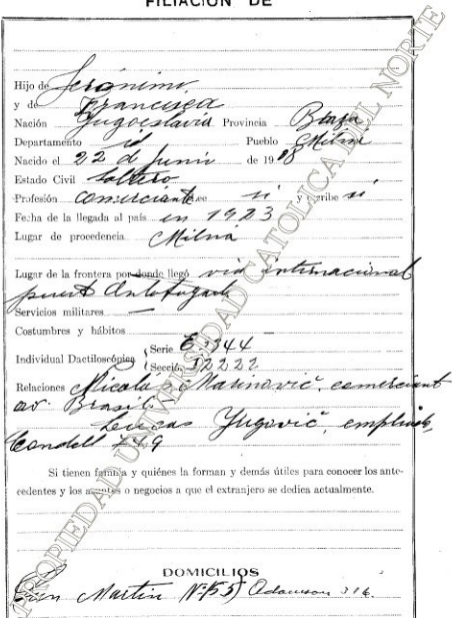 FILIACION DE
Hijo de Jerónimo
y de Francisca
Nación Yugoeslavia Provincia
Departamento id Pueblo Milna
Nacido el 22 de Junio de 19
Estado Civil Soltero
Profesión comerciante Lee si y escribe si
Fecha de la llegada al país en 1923
Lugar de procedencia Milna
Lugar de la frontera por donde llegó via internacional
puerto Antofagasta
Servicios militares —
Costumbres y hábitos
Individual Dactiloscópica Serie E 344
Sección 22222
Relaciones Nicolás Marinović, comerciant
av. Brasil
Lucas Yugović, empleado,
Condell
Si tienen familia y quiénes la forman y demás útiles para conocer los ante-
cedentes y los asuntos o negocios a que el extranjero se dedica actualmente.
DOMICILIOS
San Martin Nº 55
PROPIEDAD UNIVERSIDAD CATOLICA DEL NORTE